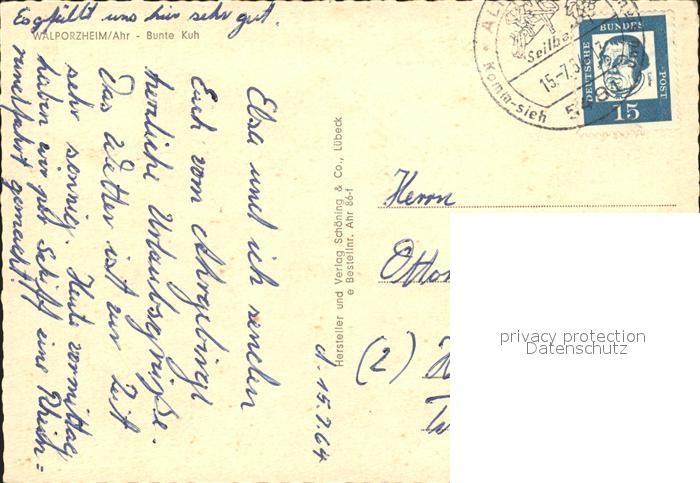 Es gefällt uns hier sehr gut.
WALPORZHEIM/Ahr - Bunte Kuh
d. 15.7.64
Elsa und ich senden
Euch vom Ahrgebirge
herzliche Urlaubsgrüße.
Das Wetter ist zur Zeit
sehr sonnig. Heute vormittag
haben wir per Schiff eine Rhein=
gemacht!
Hersteller und Verlag Schöning & Co., Lübeck
e Bestellnr. Ahr 86-f
Seilba
15.-7.
Komm-sieh
DEUTSCHE BUNDES POST
15
Herrn
Otto
(2)
privacy protection
Datenschutz